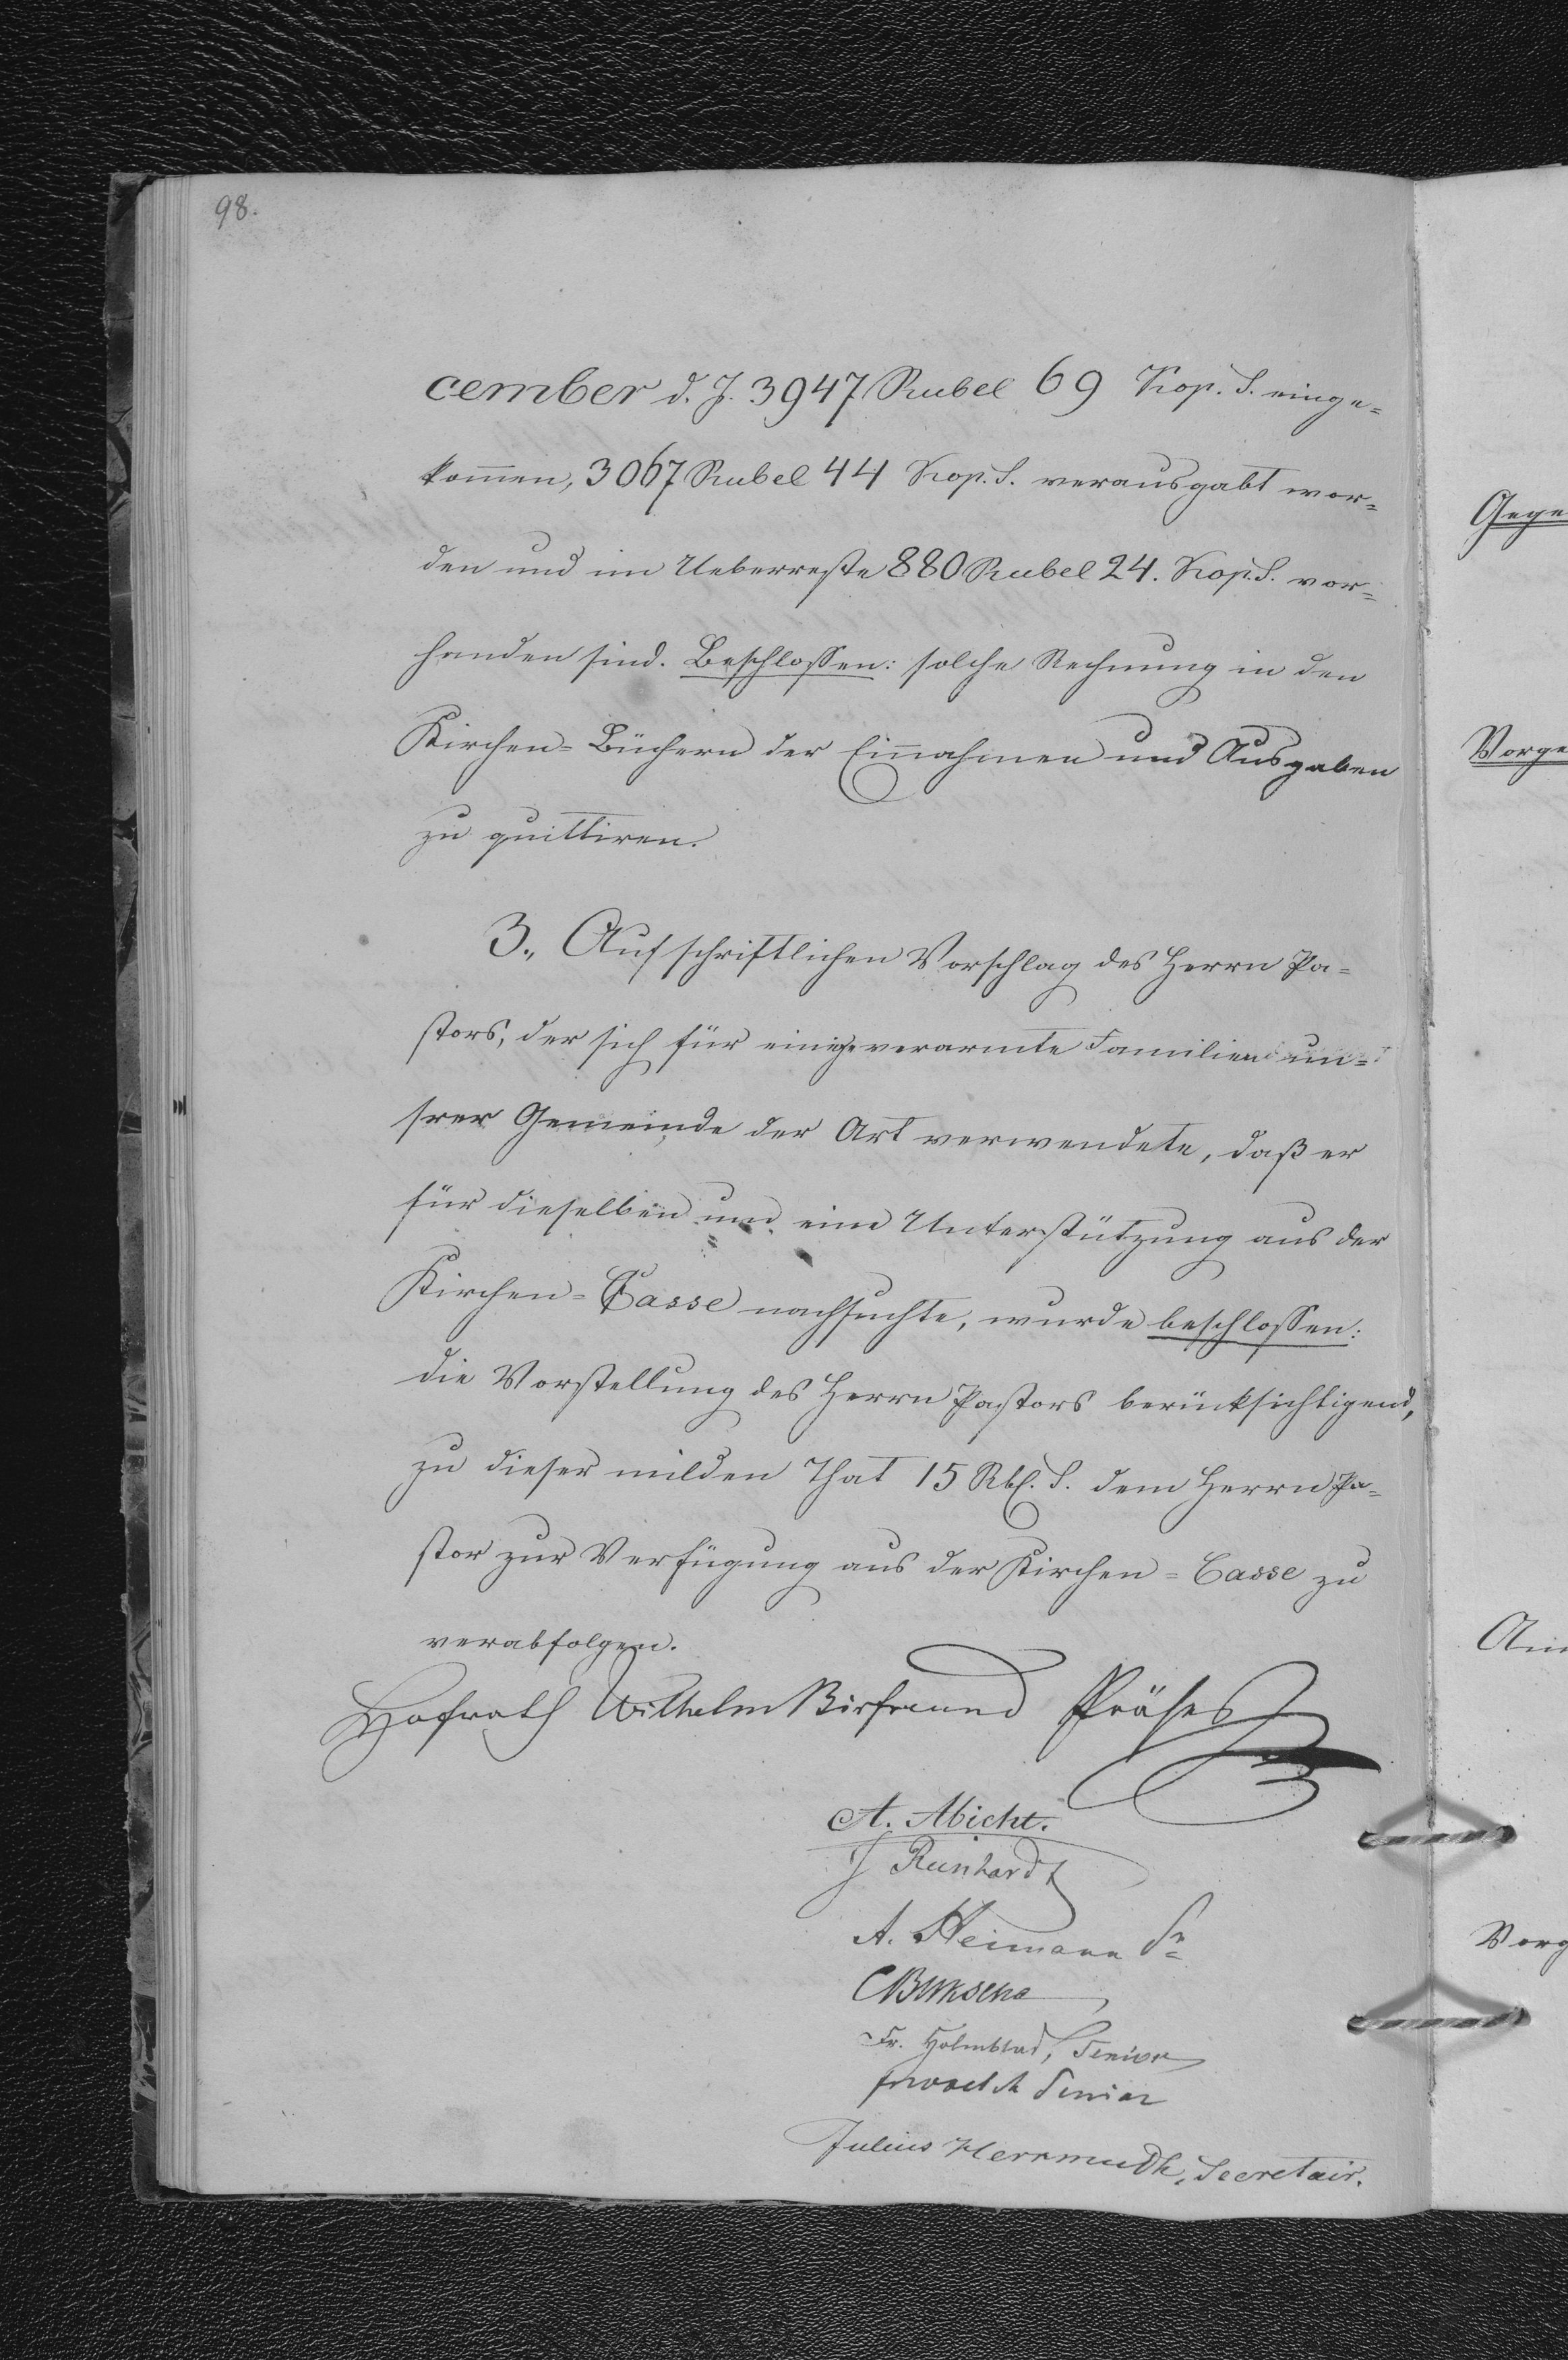 98.
cember d. J. 3947 Rubel 69 Kop. S. einge=
kom̅en, 3067 Rubel 44 Kop. S. verausgabt wor=
den und im Ueberreste 880 Rubel 24. Kop. S. vor=
handen sind. Beschlossen: solche Rechnung in den
Kirchen=Büchern der Einnahmen und Ausgaben
zu quittiren.
3., Auf schriftlichen Vorschlag des Herrn Pa=
stors, der sich für einige verarmte Familien un=
srer Gemeinde der Art verwendete, daß er
für dieselben um eine Unterstützung aus der
Kirchen=Casse nachsuchte, wurde beschlossen:
die Vorstellung des Herrn Pastors berücksichtigend,
zu dieser milden That 15 Rbl. S. dem Herrn Pa=
stor zur Verfügung aus der Kirchen=Casse zu
verabfolgen.
Hofrath Wilhelm Präses
A. Abicht.
J Reinhardt
A. Heimann Sr
Fr. Holmblad, Senior
Senior
Julius Herrmudh, Secretair.
Gege
Vorge
Vorg